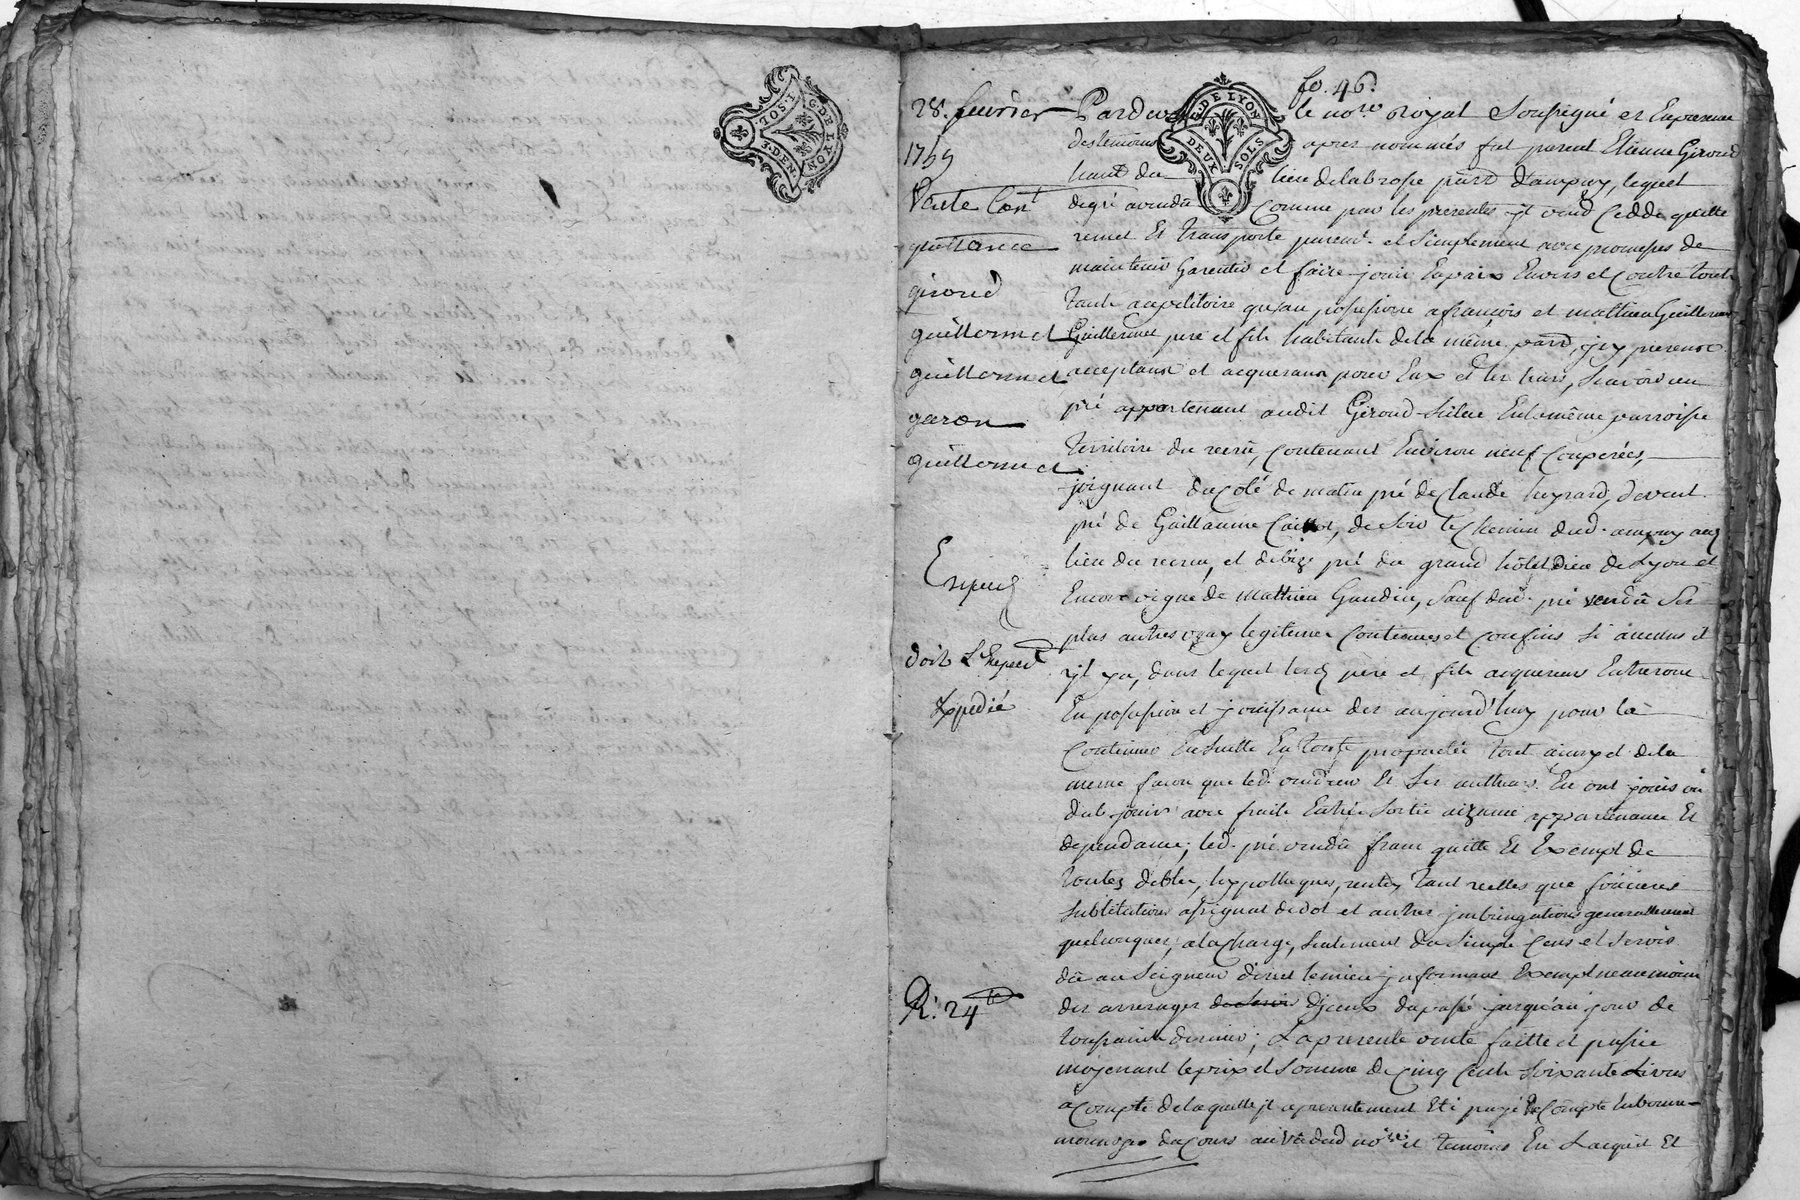 G. DE LYON
TOS. 1
F. DEN.
fo. 46.
28. feurier
1759
Vente Cont
quittance
giroud
guillermet
guillermet
garon
guillermet
Expedié
doit L'Exped
Expedié
R. 24
G. DE LYON
DEUX SOLS
Pardev le no.re Royal Soussigné et En presence
des temoins apres nommés fut present Etienne Giroud
habt du lieu de labrosse parr d'ampuy, lequel
de gré a vendu Comme par les presentes il vend Cedde quitte
remet Et transporte purem.t et simplement avec promesses de
maintenir Garentir et faire jouir En paix Envers et Contre tous
tant au petitoire qu'au possessoire a françois et mathieu Guillermet
Guillermet pere et fils habitants de la même parr, icy presents
acceptant et acquerant pour Eux et les leurs, Scavoir un
pré appartenant audit Giroud Situé En la même parroisse
territoire du recru, Contenant Environ neuf Couperées,
joignant du Coté de matin pré de Claude heyrard, devent
pré de Guillaume, de Soir le Chemin dud. ampuy au
lieu du recru, et de bize pré du grand hôtel Dieu de Lyon et
Encore vigne de mathieu Gaudin, Sauf dud. pré vendu Ses
plus autres vray legitimes Contenues et Confins Si aucuns il
y a, dans lequel lesd pere et fils acquereurs Entreront
En possession et jouissance des aujourd'huy pour la
Continuer Ensuitte En toute proprieté tout ainsy et de la
meme facon que led. vendeur Et Ses autheurs En ont jouis ou
dub jouir avec fruits Entrée Sortie aizance appartenance Et
dependance; led. pré vendu franc quitte Et Exempt de
toutes debtes, hypotheques, rentes tant reelles que foncieres
Substitution assignat de dot et autres jmbringations generallement
quelconques, a la Charge, Seulement du Simple Cens et Servis
dû au Seigneur direct le mieux jnformant Exempt neanmoins
des arrerages de Servis d'jceux du passé jusqu'au jour de
toussaint dernier; La presente vente faitte et passée
moyenant le prix et Somme de Cinq Cents Soixante Livres
a Compte de laquelle il a presentement Eté payé Compté En bonne
monnoye du Cours au vû dud no.re et temoins En Lacquit Et